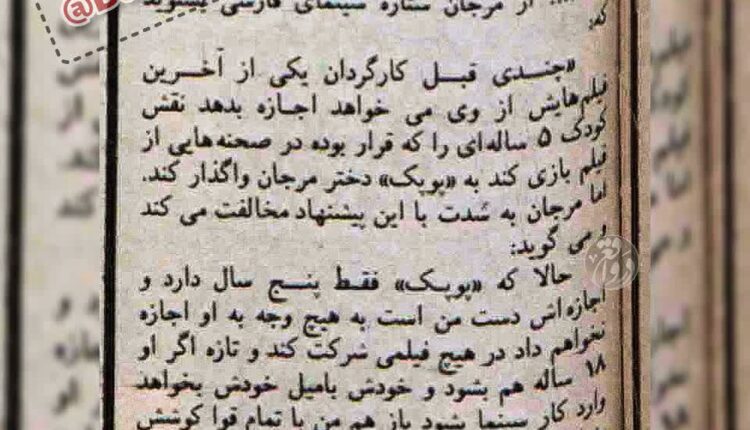 از مرجان ستاره سینمای فارسی بشنوید
که:
«چندی قبل کارگردان یکی از آخرین
فیلم‌هایش از وی می خواهد اجازه بدهد نقش
کودک ۵ ساله‌ای را که قرار بوده در صحنه‌هایی از
فیلم بازی کند به «پوپک» دختر مرجان واگذار کند.
اما مرجان به شدت با این پیشنهاد مخالفت می کند
و می گوید:
حالا که «پوپک» فقط پنج سال دارد و
اجازه‌اش دست من است به هیچ وجه به او اجازه
نخواهم داد در هیچ فیلمی شرکت کند و تازه اگر او
۱۸ ساله هم بشود و خودش بامیل خودش بخواهد
وارد کار سینما بشود باز هم من با تمام قوا کوشش